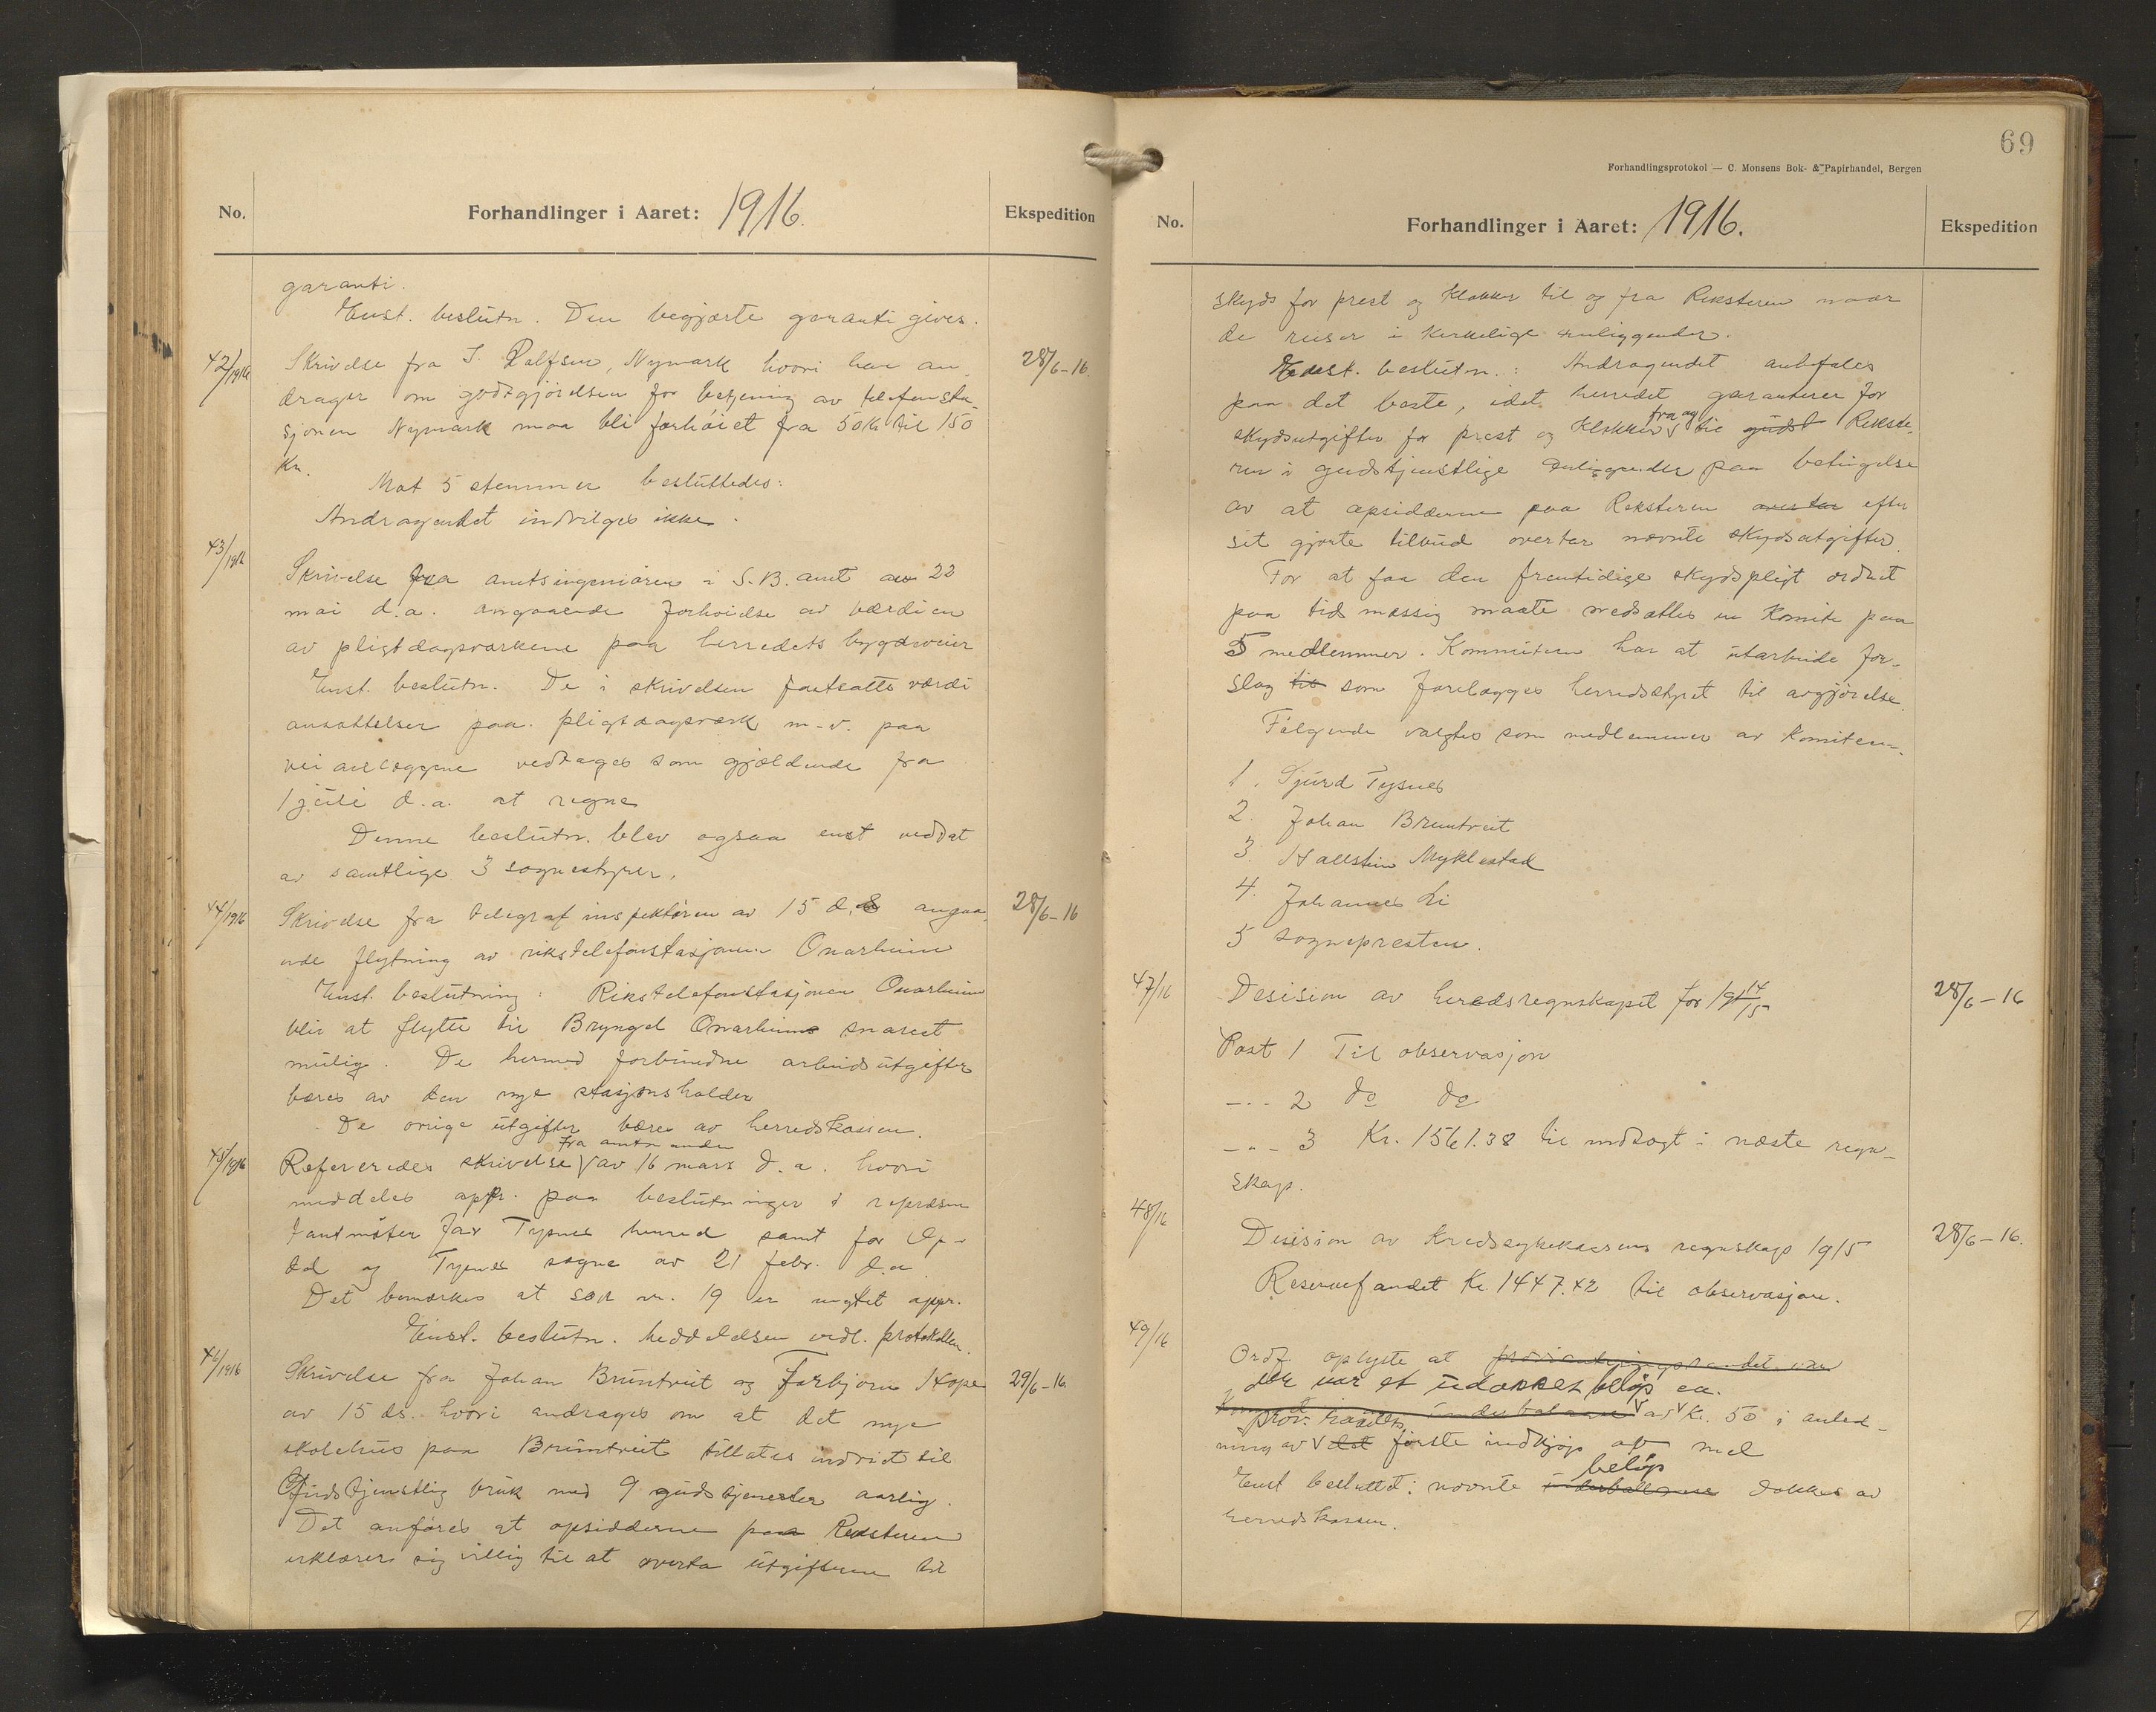 No.
Forhandlinger i Aaret: 1916.
Ekspedition
garanti.
Enst. beslutn. Den begjærte garanti gives.
42/1916
Skrivelse fra J. Rolfsen, Nymark hvori han an-
28/6-16.
drager om godtgjörelsen for betjening av telefonsta-
sjonen Nymark maa bli forhöiet fra 50 Kr til 150
Kr.
Mot 5 stemmer besluttedes:
Andragendet indvilges ikke.
43/1916
Skrivelse fra amtsingeniören i S.B. amt av 22
mai d.a. angaaende forhöielse av værdien
av pligtdagsverkene paa herredets bygdeveier
Enst. beslutn. De i skrivelsen fastsatte værdi
ansættelser paa pligtdagsverk m.v. paa
veianlæggene vedtages som gjældende fra
1 juli d.a. at regne
Denne beslutn. blev ogsaa enst vedtat
av samtlige 3 sognestyrer.
44/1916
Skrivelse fra telegrafinspektören av 15 d.s angaa-
28/6-16
ende flytning av rikstelefonstasjonen Onarheim
Enst. beslutning: Rikstelefonstasjonen Onarheim
blir at flytte til Bryngel Onarheim snarest
mulig. De hermed forbundne arbeidsutgifter
bæres av den nye stasjonsholder
De övrige utgifter bæres av herredskassen.
45/1916
Refereredes skrivelse fra amtm av 16 mars d.a. hvori
meddeles appr. paa beslutninger i repræsen
tantmöter for Tysnes herred samt for Op-
dal og Tysnes sogne av 21 febr. d.a.
Det bemerkes at sak nr. 19 er negtet appr.
Enst. beslutn. Meddelelsen vedl. protokollen.
46/1916
Skrivelse fra Johan Bruntveit og Torbjörn Hope
29/6-16.
av 15 ds. hvori andrages om at det nye
skolehus paa Bruntveit tillates indviet til
Gudstjenstlig bruk med 9 gudstjenester aarlig.
Det anföres at opsidderne paa Reksteren
erklærer sig villig til at overta utgifterne til
69
Forhandlingsprotokol — C. Monsens Bok- & Papirhandel, Bergen
No.
Forhandlinger i Aaret: 1916.
Ekspedition
skyds for prest og klokker til og fra Reksteren naar
de reiser i kirkelige anliggender.
Enst. beslutn.: Andragendet anbefales
paa det beste, idet herredet garanterer for
skydsutgifter for prest og klokker fra og til gudst Rekste-
ren i gudstjenstlige anliggender paa betingelse
av at opsidderne paa Reksteren overtar efter
sit gjorte tilbud overtar nævnte skydsutgifter.
For at faa den fremtidige skydspligt ordnet
paa tidsmæssig maate nedsættes en komite paa
5 medlemmer. Kommiteen har at utarbeide for-
slag til som forelægges herredsstyret til avgjörelse.
Fölgende valgtes som medlemmer av komiteen.
1. Sjurd Tysnes
2. Johan Bruntveit
3. Hallstein Myklestad
4. Johannes Li
5 sognepresten.
47/16
Desision av herredsregnskapet for 1914/15
28/6-16
Post 1 Til observasjon
-..- 2 do do
-..- 3 Kr. 1561.38 til indtægt i næste regn-
skap.
48/16
Desision av Kredssykekassens regnskap 1915
28/6-16.
Reservefondet Kr. 1447.42 til observasjon.
49/16
Ordf. oplyste at
der var et udækket belöp ca.
av Kr. 50 i anled-
prov. raadets
ning av det förste indkjöp av mel
belöp
Enst besluttet: nævnte underballanse dækkes av
herredskassen.